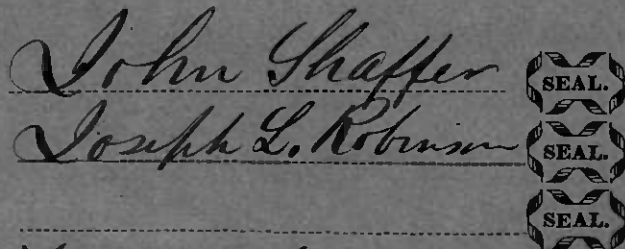 John Shaffer SEAL.
Joseph L. Robinson SEAL.
SEAL.